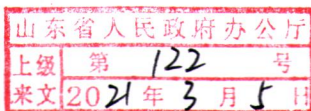 山东省人民政府办公厅
上级 第 122 号
来文 2021年3月5日